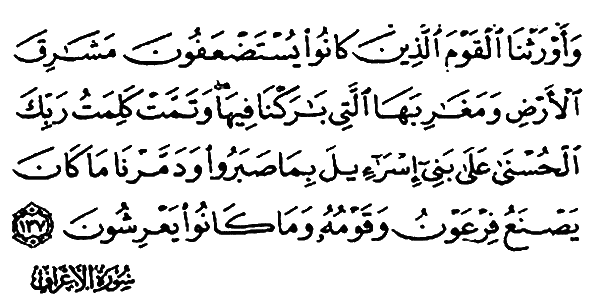 وَأَوْرَثْنَا ٱلْقَوْمَ ٱلَّذِينَ كَانُوا۟ يُسْتَضْعَفُونَ مَشَٰرِقَ
ٱلْأَرْضِ وَمَغَٰرِبَهَا ٱلَّتِى بَٰرَكْنَا فِيهَا ۖ وَتَمَّتْ كَلِمَتُ رَبِّكَ
ٱلْحُسْنَىٰ عَلَىٰ بَنِىٓ إِسْرَٰٓءِيلَ بِمَا صَبَرُوا۟ وَدَمَّرْنَا مَا كَانَ
يَصْنَعُ فِرْعَوْنُ وَقَوْمُهُۥ وَمَا كَانُوا۟ يَعْرِشُونَ ١٣٧
سُورَةُ الأَعْرَافِ